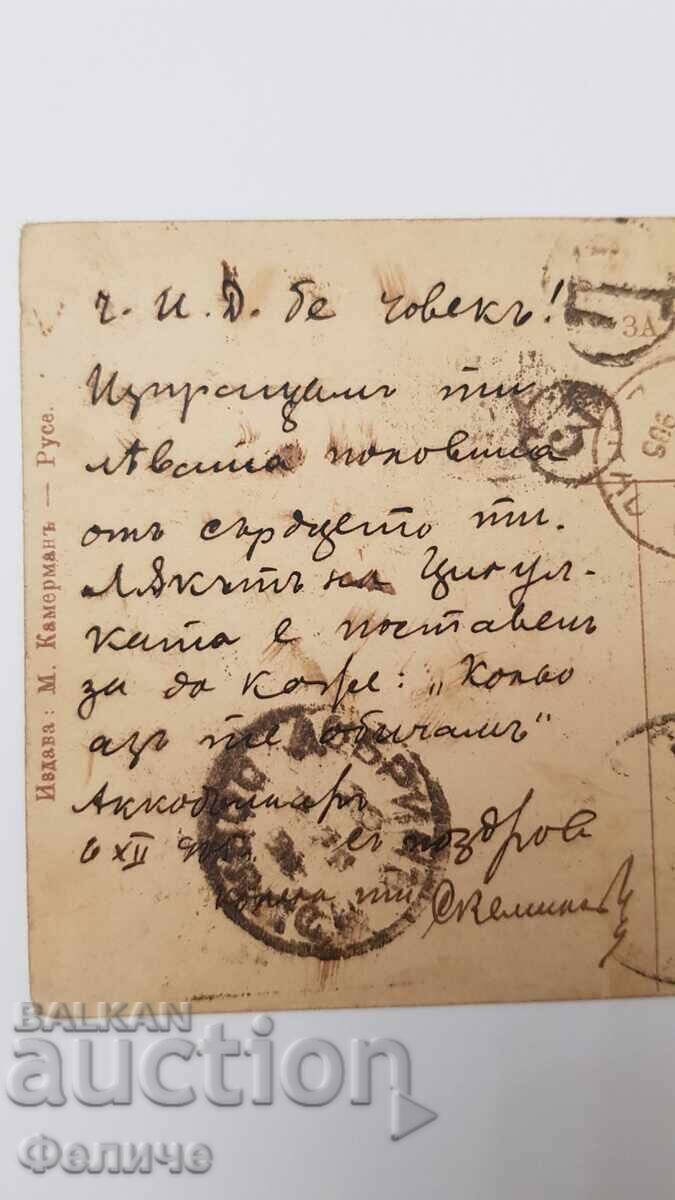 ч. И. Д. бе човекъ!
Изпращамъ ти
лѣвата половина
отъ сърдцето ти.
Лѫкътъ на Цигул-
ката е поставенъ
за да каже: „Кольо
азъ те обичамъ“
6 XII съ поздрав
ти
Издава: М. Камерманъ — Русе.
ЗА
905
BALKAN
auction
Феличе